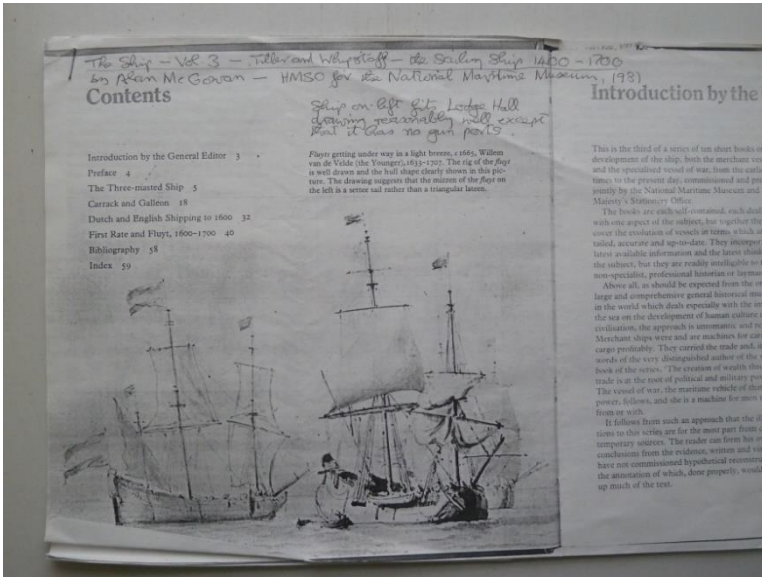 The Ship – Vol. 3 – Tiller and Whipstaff – the Sailing Ship 1400 – 1700
by Alan McGowan – HMSO for the National Maritime Museum, 1981
Contents
Ship on left fits Lodge Hall
drawing reasonably well except
that it has no gun ports.
Introduction by the General Editor 3
Preface 4
The Three-masted Ship 5
Carrack and Galleon 18
Dutch and English Shipping to 1600 32
First Rate and Fluyt, 1600–1700 40
Bibliography 58
Index 59
Fluyts getting under way in a light breeze, c 1665, Willem
van de Velde (the Younger), 1633–1707. The rig of the fluyt
is well drawn and the hull shape clearly shown in this pic-
ture. The drawing suggests that the mizzen of the fluyt on
the left is a settee sail rather than a triangular lateen.
Introduction by the
This is the third of a series of ten short books
development of the ship, both the merchant
and the specialised vessel of war, from the
times to the present day, commissioned and
jointly by the National Maritime Museum and
Majesty's Stationery Office.
The books are each self-contained, each
with one aspect of the subject, but together
cover the evolution of vessels in terms which
tailed, accurate and up-to-date. They
latest available information and the latest
the subject, but they are readily intelligible
non-specialist, professional historian or
Above all, as should be expected from the
large and comprehensive general historical
in the world which deals especially with the
the sea on the development of human culture
civilisation, the approach is unromantic and
Merchant ships were and are machines for
cargo profitably. They carried the trade and,
words of the very distinguished author of the
book of the series, 'The creation of wealth
trade is at the root of political and military
The vessel of war, the maritime vehicle of
power, follows, and she is a machine for
from or with.
It follows from such an approach that the
tions to this series are for the most part from
temporary sources. The reader can form his
conclusions from the evidence, written and
have not commissioned hypothetical
the annotation of which, done properly, would
up much of the text.